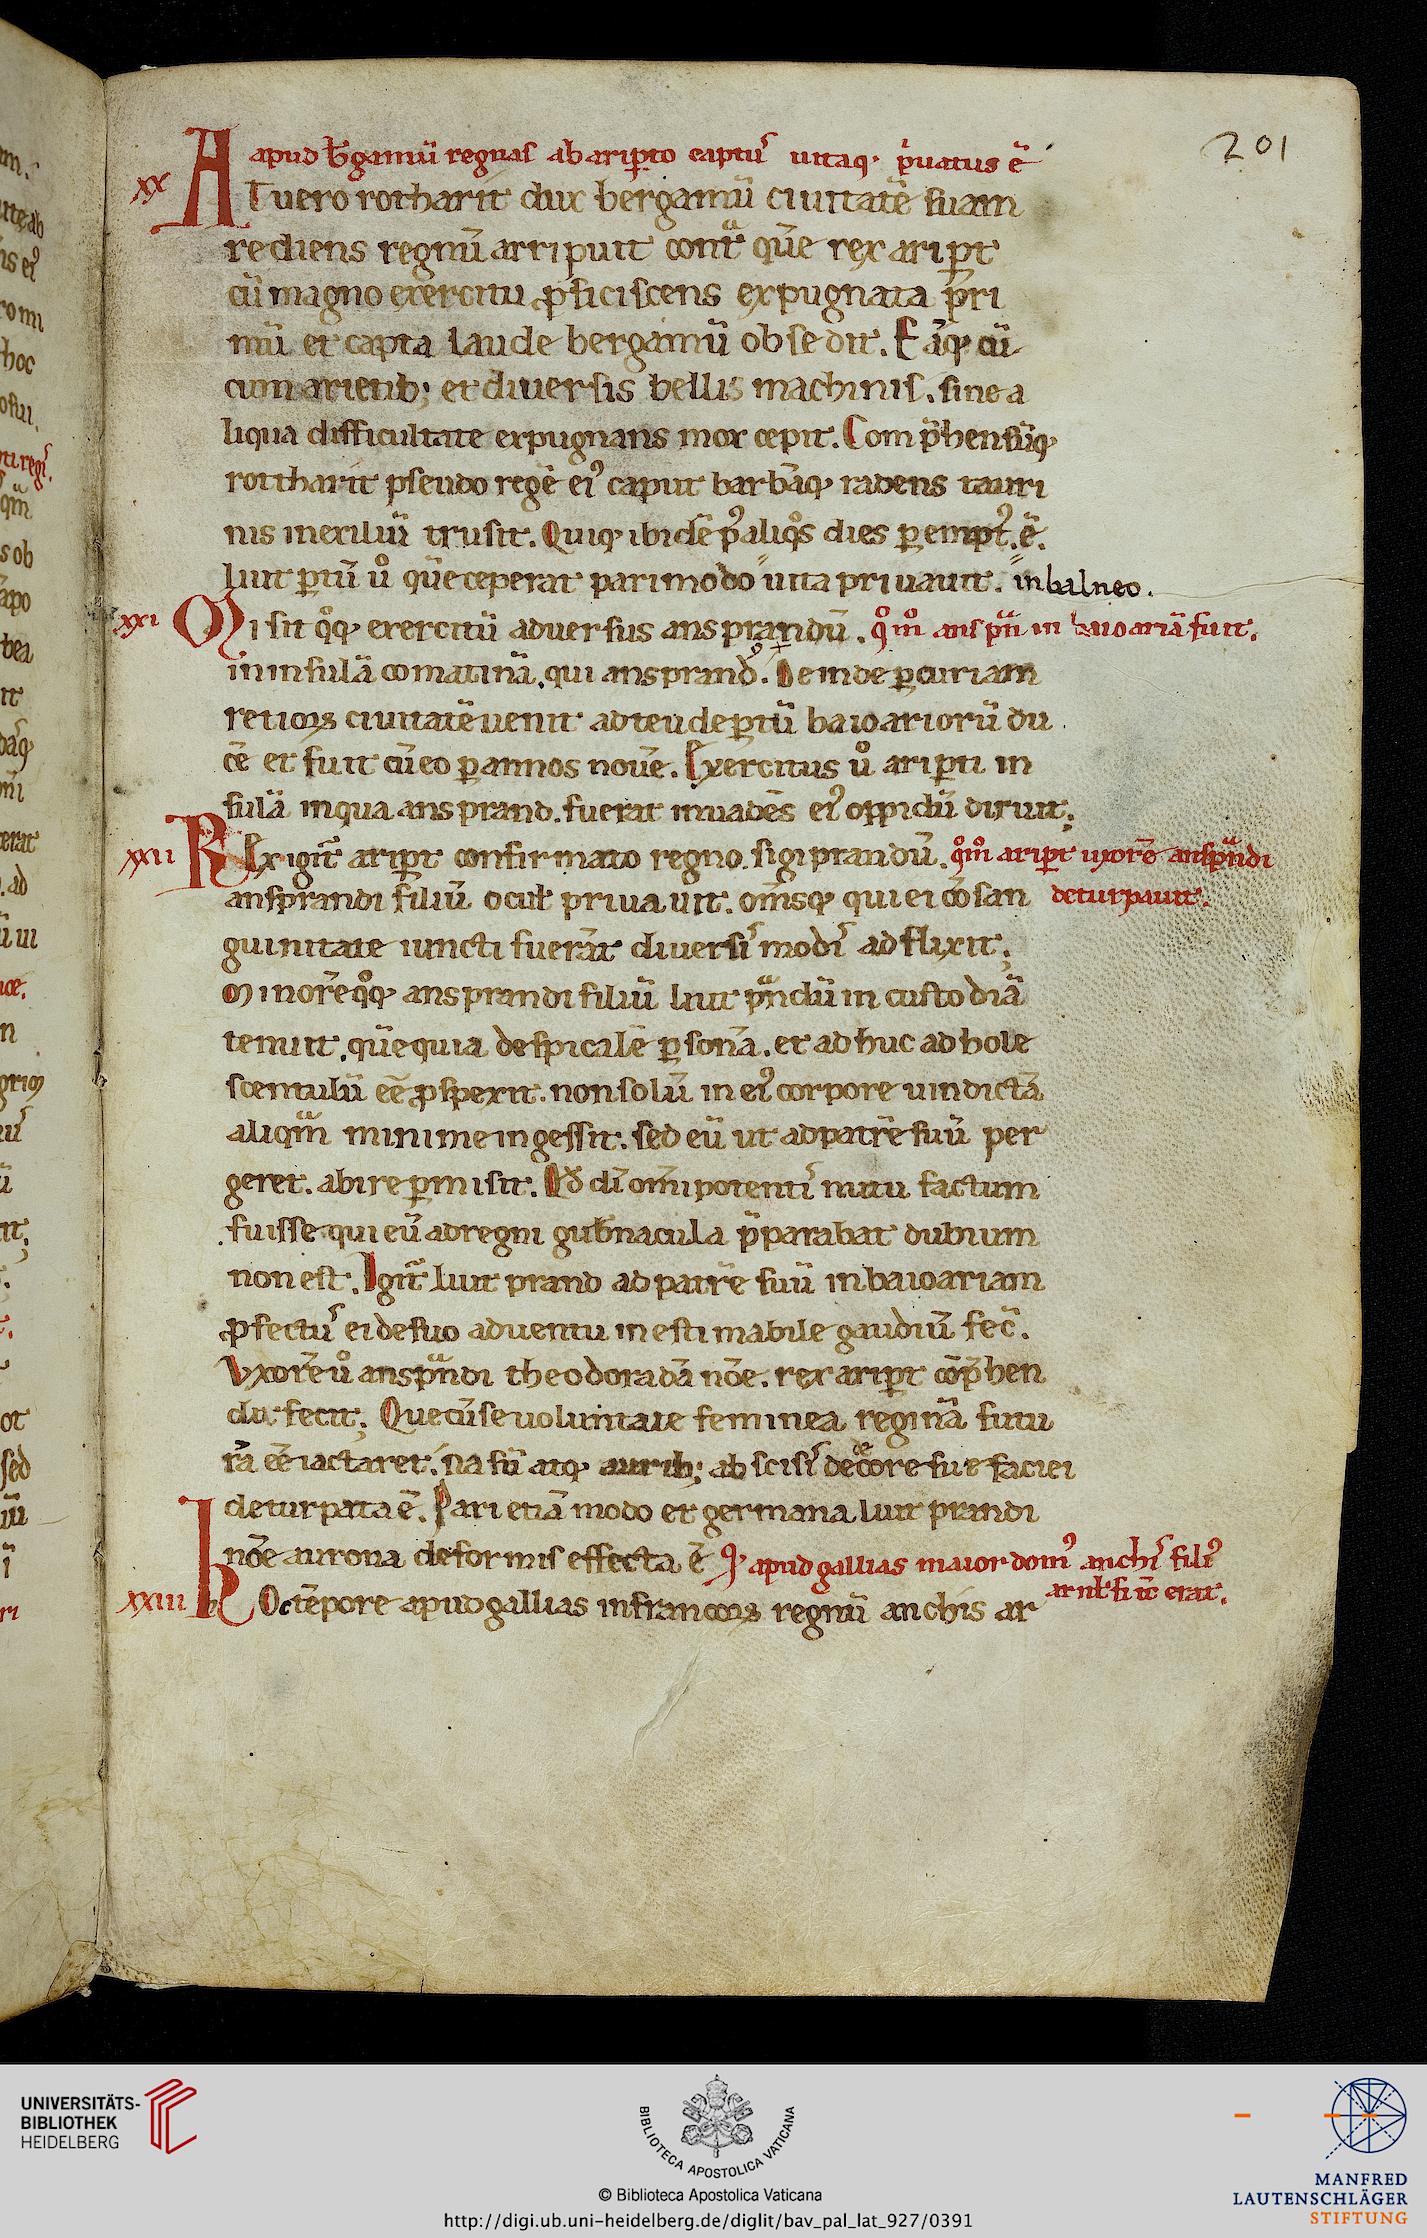 201
apud b̄gamū regnas ab aripto captus uitaq; p̄uatus ē
xx
AT uero rotharit dux bergamū ciuitatē suam
rediens regnū arripuit contᵃ quē rex aript
cū magno exercitu ꝓficiscens expugnata pri
mū et capta laude bergamū obsedit. Eāq; cū
cum arietib; et diuersis bellis machinis. sine a
liqua difficultate expugnans mox cepit. Com p̄hensūq;
rottharit pseudo regē eiꝰ caput barbāq; radens tauri
nis inexiliū trusit. Quiq; ibidē pꝰ aliqͦs dies ꝑemptꝰ ē.
luit ꝑtū uͦ quē ceperat pari modo uita priuauit. in balneo.
xxi
Misit qͦq; exercitū aduersus ansprandū. qͦmͦ anspᵃn in baioariā fuit.
in insulā comatinā, qui ansprand. Deinde ꝑ curiam
retioꝝ ciuitatē uenit ad teudeꝑtū baioariorū du
cē et fuit cū eo ꝑ annos nouē. Exercitus uͦ ariꝑti in
sulā in qua ansprand. fuerat inuadēs eiꝰ oppidū diruit;
xxii
REx igit̄ ariꝑt confirmato regno. sigiprandū. qͦmͦ ariꝑt uxorē anspᵃndi
ansprandi filiū ocul̄ priuauit. om̄sq; qui ei cōsan deturpauit.
guinitate iuncti fuerāt diuersis modis adflixit;
Minorē qͦq; ansprandi filiū liut pᵃndū in custodiā
tenuit, quē quia despicalē ꝑsonā. et ad huc adhole
scentulū eē ꝓspexit. non solū in eiꝰ corpore uindictā
aliqᵃm minime ingessit. sed eū ut ad patrē suū per
geret. abire ꝑmisit. Qd̄ dī om̄ipotentis nutu factum
fuisse. qui eū ad regni gub̄nacula p̄parabat dubium
non est. Igit̄ liut prand ad patrē suū in baioariam
ꝓfectus ei de suo aduentu inestimabile gaudiū fec̄.
Vxorē uͦ anspᵃndi theodoradā nōe. rex ariꝑt cōp̄hen
di fecit; Que cū se uoluntate feminea reginā futu
rā eē iactaret. nasū atq; aurib; abscisis decore sue faciei
deturpata ē. Pari etiā modo et germana liut prandi
nōe aurona deformis effecta ē Qꝰ apud gallias maior domꝰ anchis filiꝰ
xxiii
arnul̄fi tc̄ erat.
hOc tēpore apud gallias in francoꝝ regnū anchis ar
UNIVERSITÄTS-
BIBLIOTHEK
HEIDELBERG
BIBLIOTECA APOSTOLICA VATICANA
© Biblioteca Apostolica Vaticana
http://digi.ub.uni-heidelberg.de/diglit/bav_pal_lat_927/0391
MANFRED
LAUTENSCHLÄGER
STIFTUNG